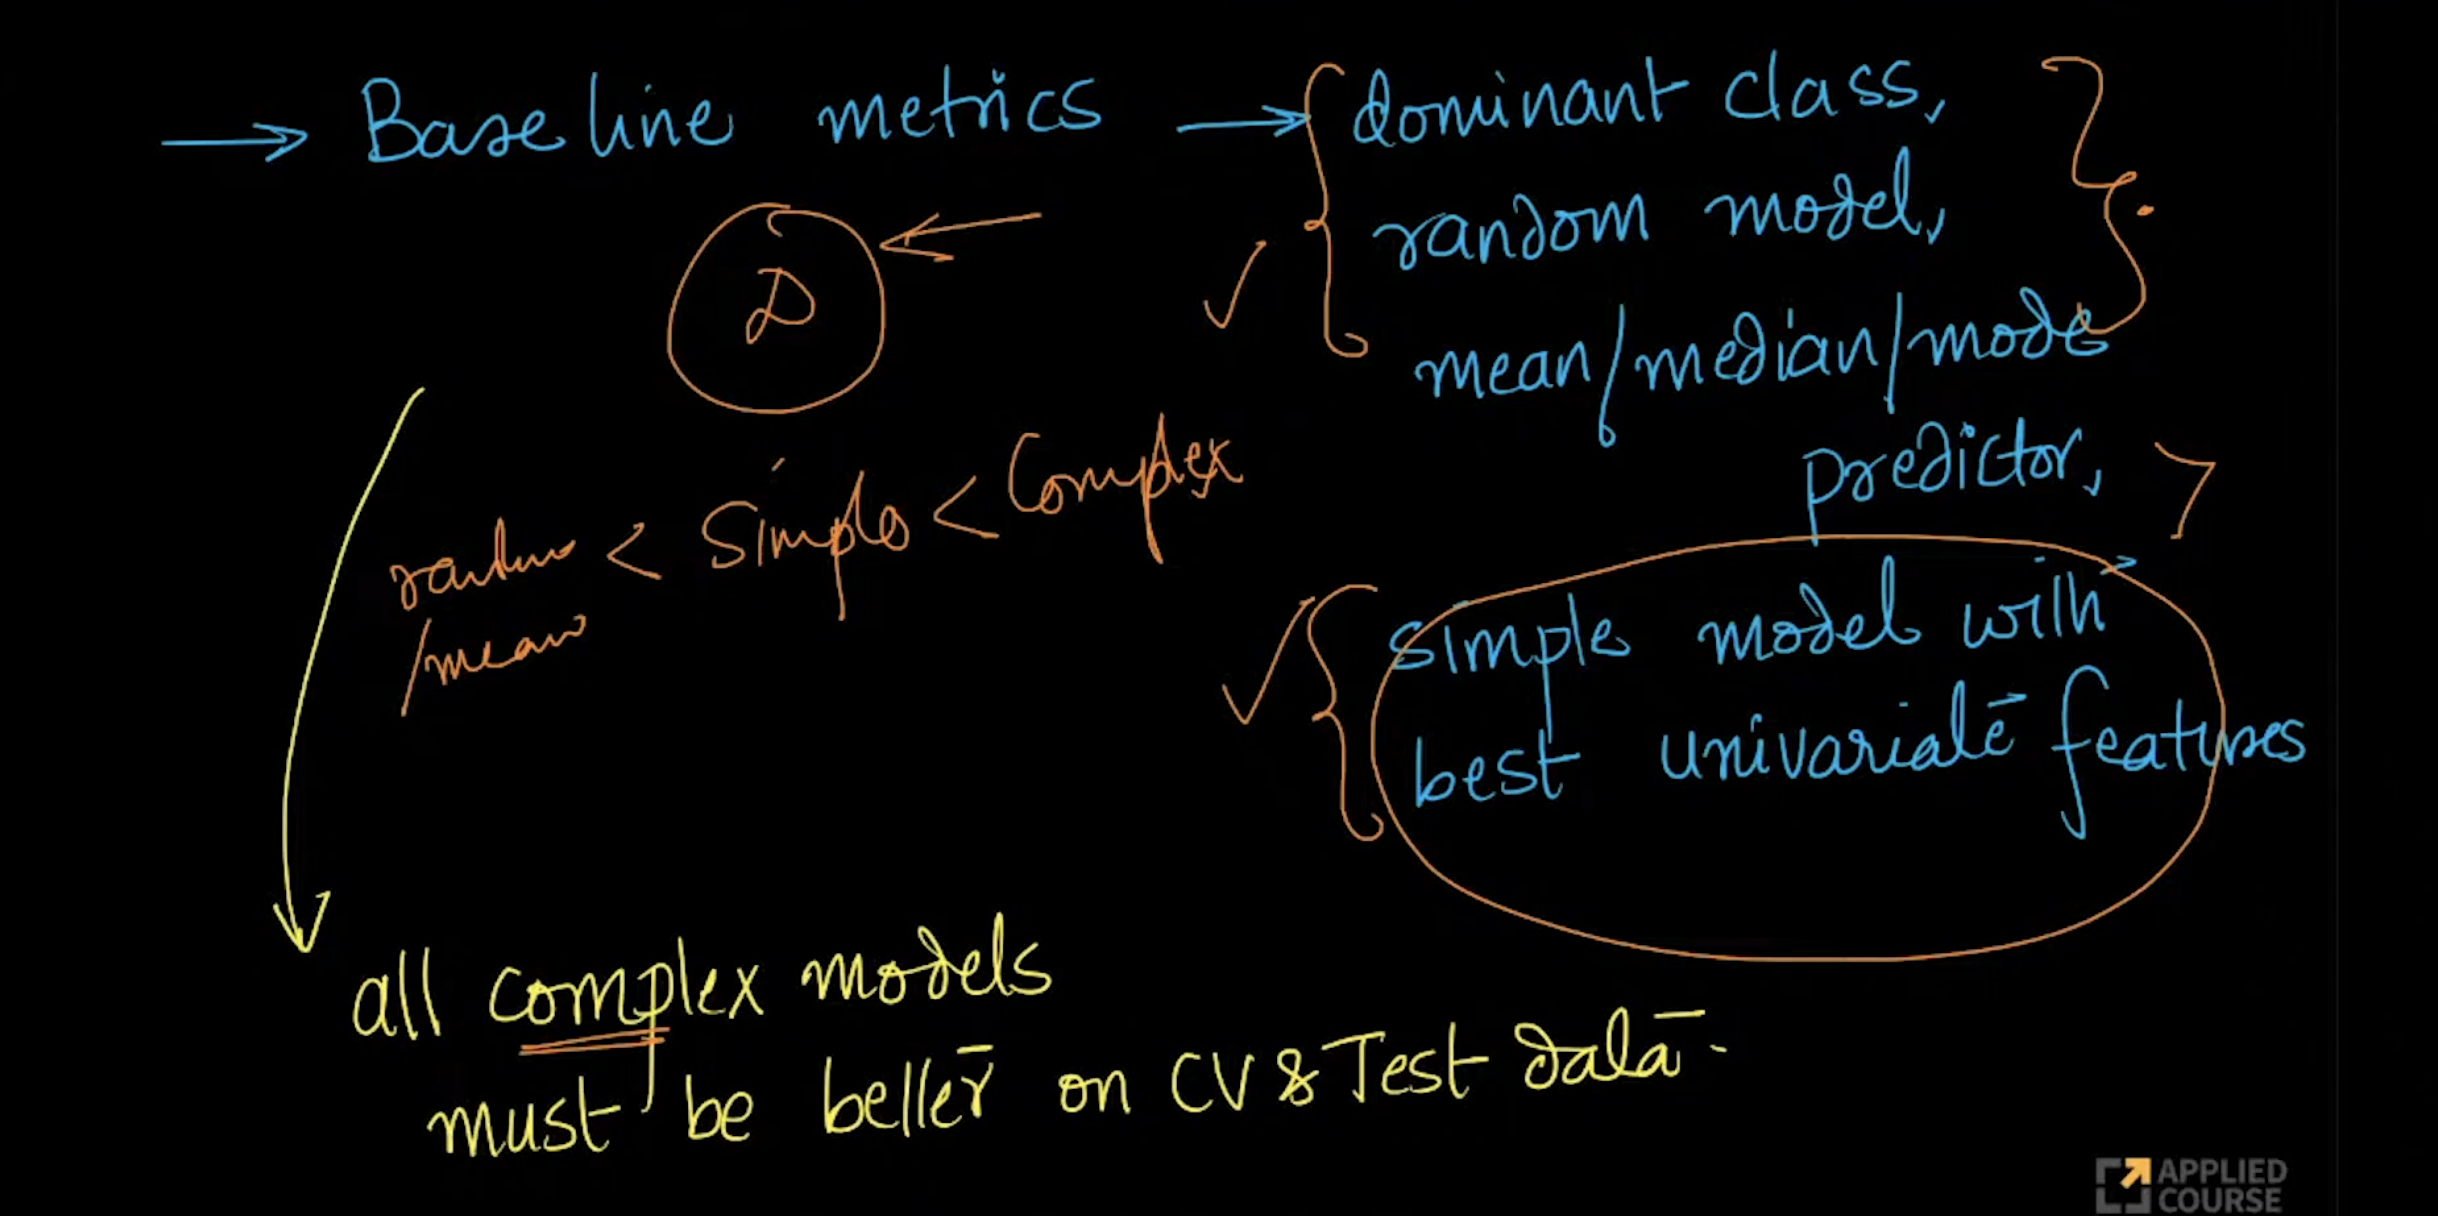 → Baseline metrics → { dominant class, }
random model,
mean/median/mode
predictor,
D
random < Simple < Complex
/mean
simple model with
best univariate features
all complex models
must be better on CV & Test data.
APPLIED
COURSE